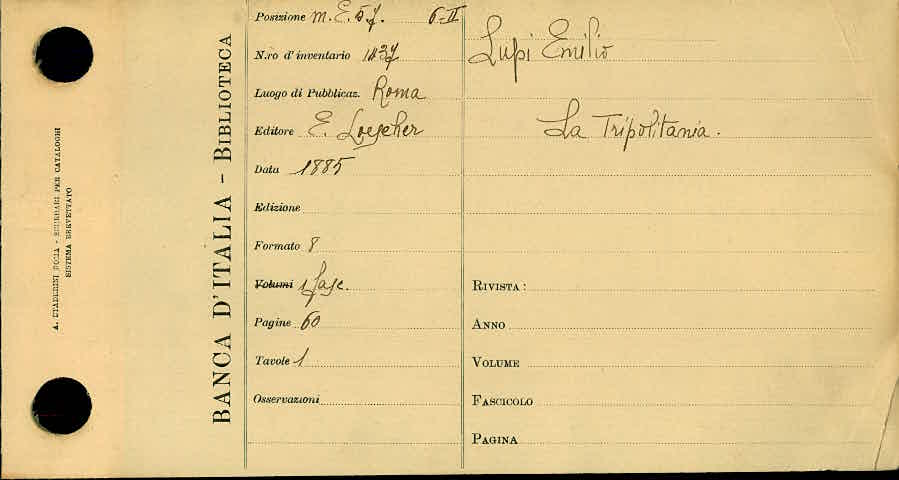 Posizione m. E. 57. 6-II
N.ro d'inventario 1437
Luogo di Pubblicaz. Roma
Editore E. Loescher
Data 1885
Edizione
Formato 8
Volumi 1 fasc.
Pagine 60
Tavole 1
Osservazioni
Lupi Emilio
La Tripolitania.
RIVISTA :
ANNO
VOLUME
FASCICOLO
PAGINA
BANCA D'ITALIA - BIBLIOTECA
A. STADERINI ROMA - SCHEDARI PER CATALOGHI
SISTEMA BREVETTATO